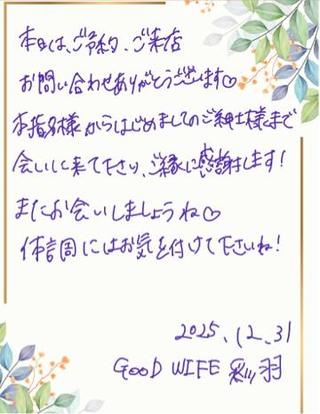 本日は、ご予約、ご来店
お問い合わせありがとうございます♡
本指名様からはじめましてのご紳士様まで
会いに来て下さり、ご縁に感謝します!
またお会いしましょうね♡
体調にはお気を付けて下さいね!
2025.12.31
GOOD WIFE 羽